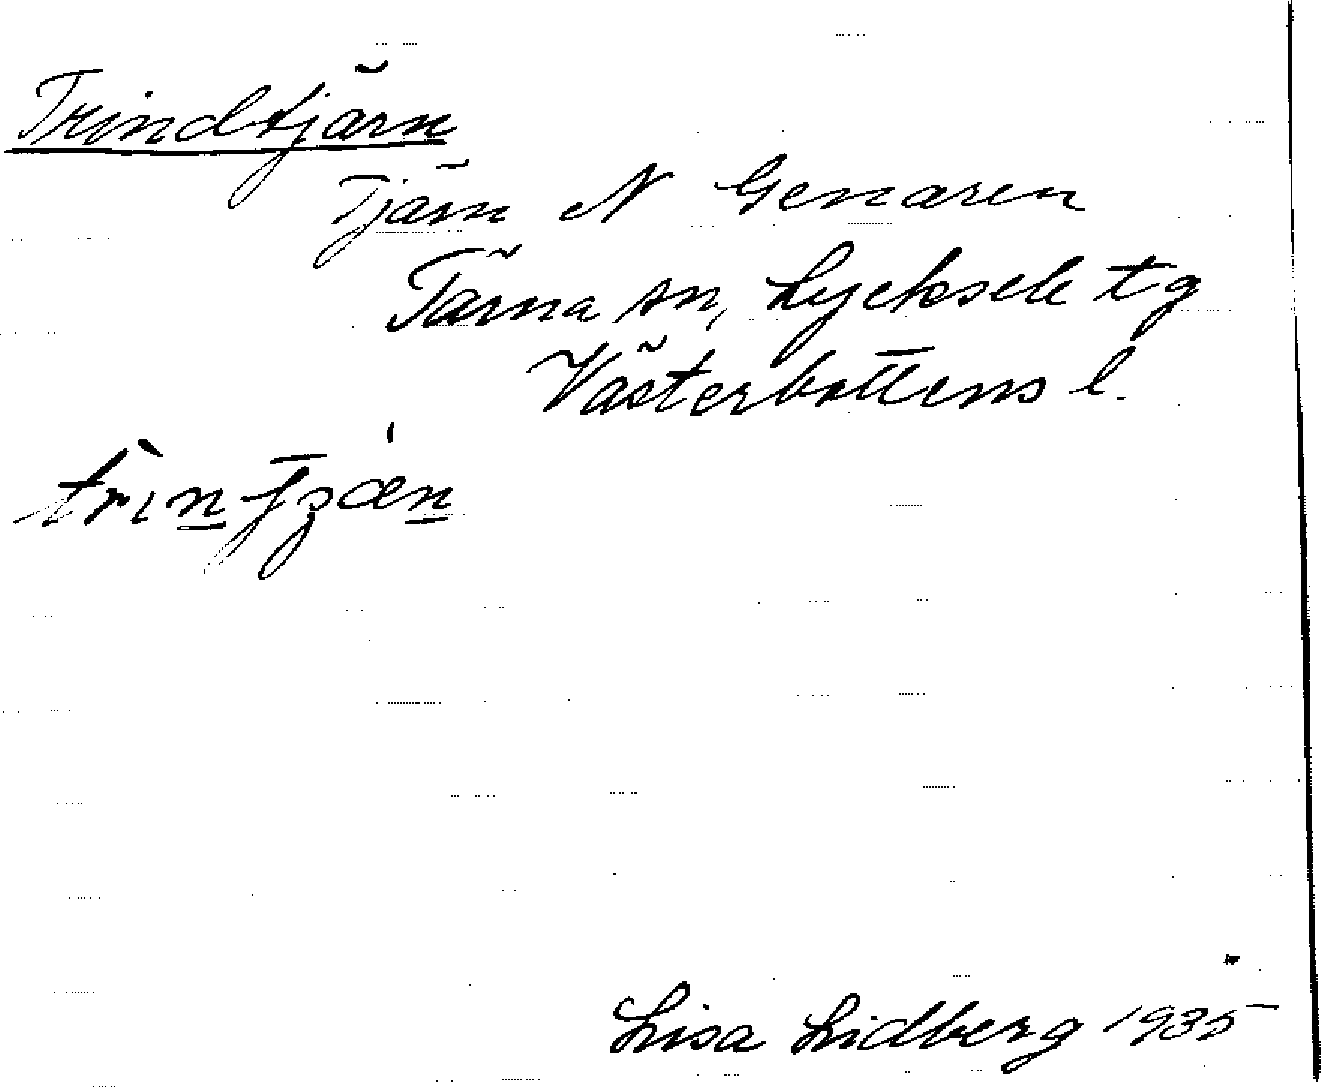 Trindtjärn
Tjärn N Genaren
Tärna sn, Lycksele tg
Västerbottens l.
Lisa Lidberg 1935